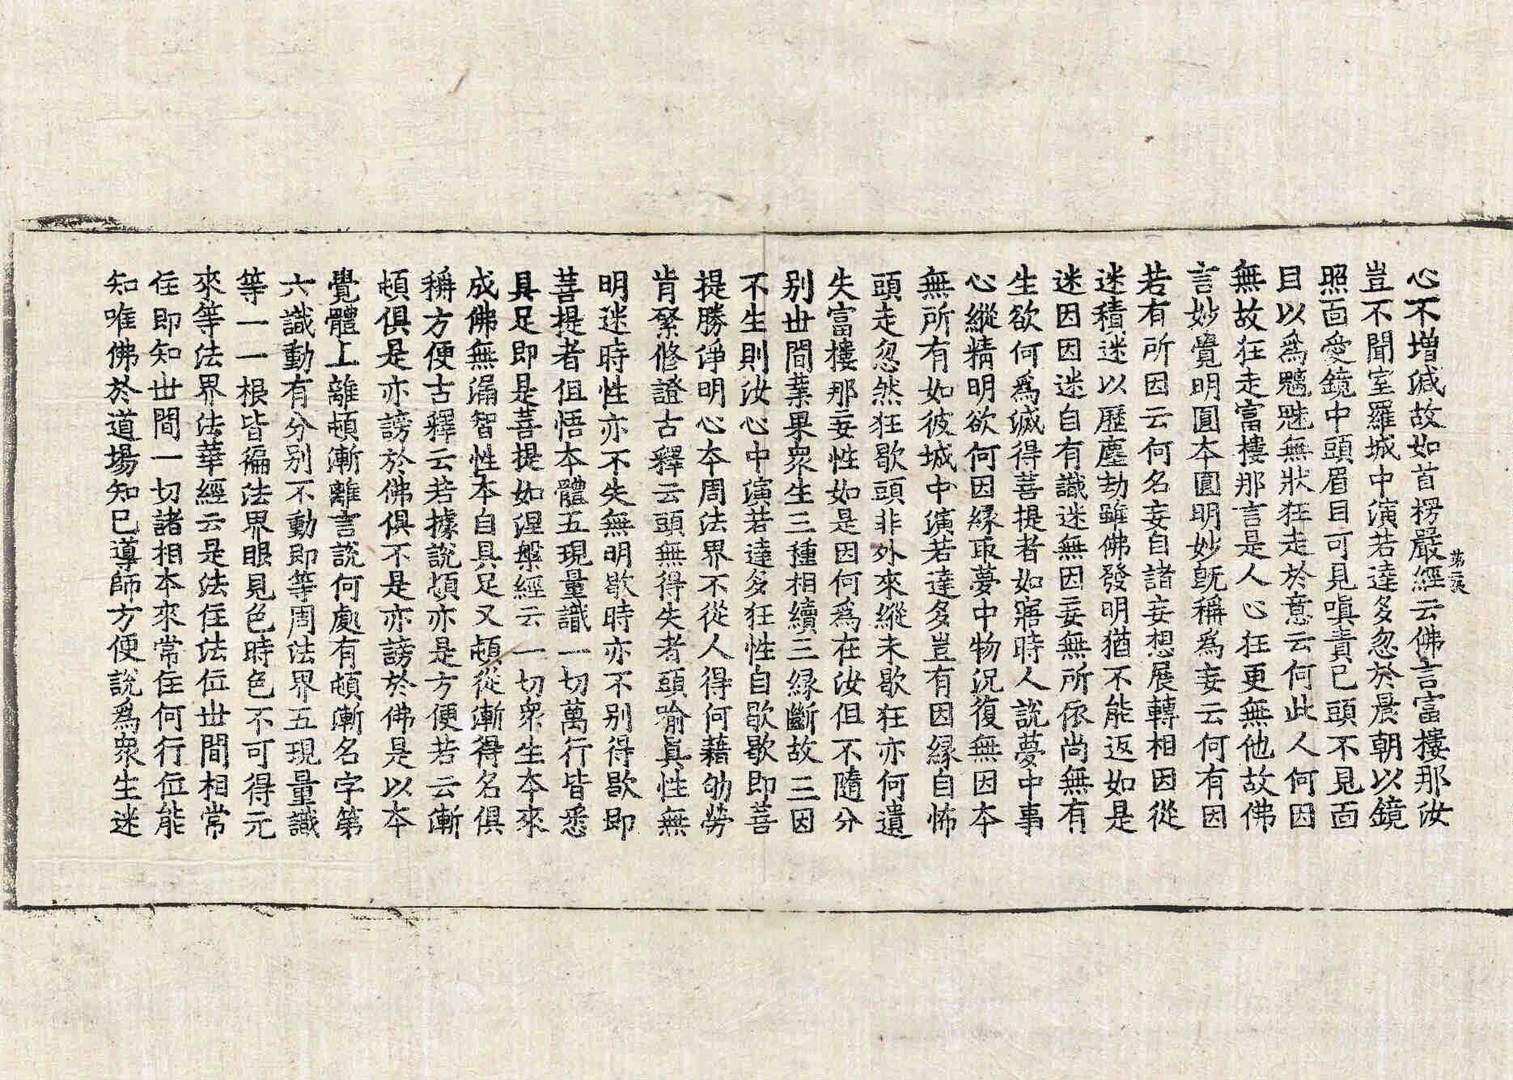 心不增減故如首楞嚴經云佛言富樓那汝
豈不聞室羅城中演若達多忽於晨朝以鏡
照面愛鏡中頭眉目可見嗔責已頭不見面
目以為魑魅無狀狂走於意云何此人何因
無故狂走富樓那言是人心狂更無他故佛
言妙覺明圓本圓明妙旣稱為妄云何有因
若有所因云何名妄自諸妄想展轉相因從
迷積迷以歷塵劫雖佛發明猶不能返如是
迷因因迷自有識迷無因妄無所依尚無有
生欲何為滅得菩提者如寤時人說夢中事
心縱精明欲何因緣取夢中物況復無因本
無所有如彼城中演若達多豈有因緣自怖
頭走忽然狂歇頭非外來縱未歇狂亦何遺
失富樓那妄性如是因何為在汝但不隨分
別世間業果衆生三種相續三緣斷故三因
不生則汝心中演若達多狂性自歇歇即菩
提勝淨明心本周法界不從人得何藉劬勞
肯綮修證古釋云頭無得失者頭喻真性無
明迷時性亦不失無明歇時亦不別得歇即
菩提者但悟本體五現量識一切萬行皆悉
具足即是菩提如涅槃經云一切衆生本來
成佛無漏智性本自具足又頓從漸得名俱
稱方便古釋云若據說頓亦是方便若云漸
頓俱是亦謗於佛俱不是亦謗於佛是以本
覺體上離頓漸離言說何處有頓漸名字第
六識動有分別不動即等周法界五現量識
等一一根皆徧法界眼見色時色不可得元
來等法界法華經云是法住法位世間相常
住即知世間一切諸相本來常住何行位能
知唯佛於道場知已導師方便說為衆生迷